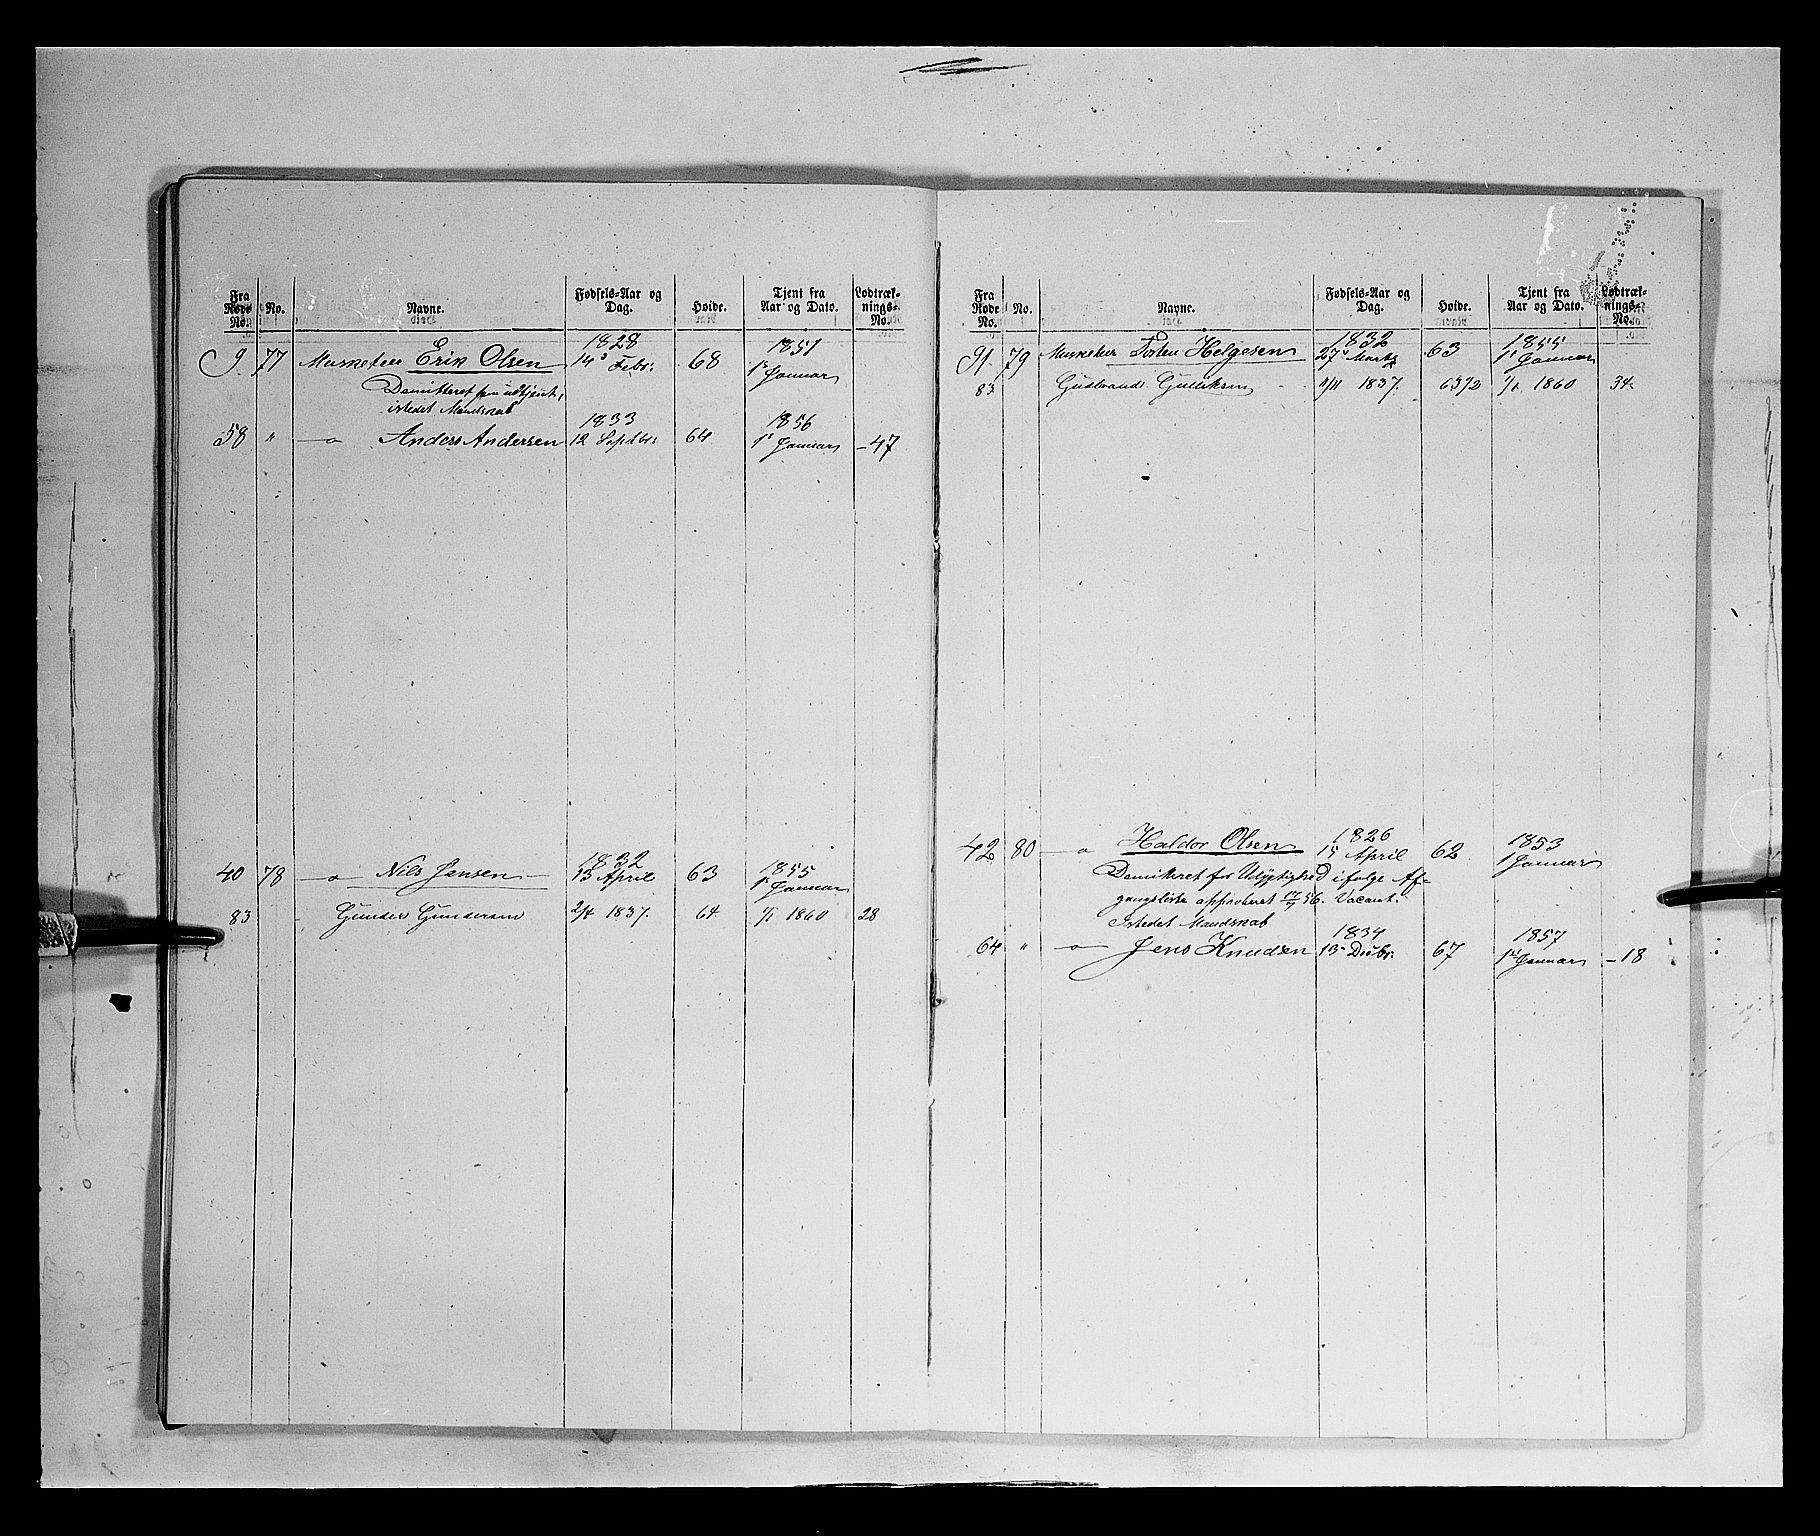 Fra Rode No. | No. | Navne. | Fødsels-Aar og Dag. | Høide. | Tjent fra Aar og Dato. | Lodtræk-nings-No.
9. 77 Musketeer Erik Olsen 1828 14de Febr. 68 1851 1ste Januar
Demitteret som udtjent,
istedet Mandskab
58 " —o— Anders Andersen 1833 12 Septbr. 64 1856 1ste Januar – 47
40 78 —o— Nils Jensen 1832 13 April 63 1855 1ste Januar
83 Gunder Gundersen 2/4 1837. 64 1/1 1860 28
Fra Rode No. | No. | Navne. | Fødsels-Aar og Dag. | Høide. | Tjent fra Aar og Dato. | Lodtræk-nings-No.
91. 79 Musketeer Torsten Helgesen 1832 27de Marts 63 1855 1ste Januar
83 Gudbrand Gulliksen 11/11 1837. 63 1/2 1/1 1860 34
42 80 —o— Haldor Olsen 1826 15 April 62 1853 1 Januar
Demitteret for Udygtighed ifølge Af-
gangsliste approberet 17/7 56. Vacant.
Istedet Mandskab
64 " —o— Jens Knudsen 1834 15 Decbr. 67 1857 1ste Januar – 18